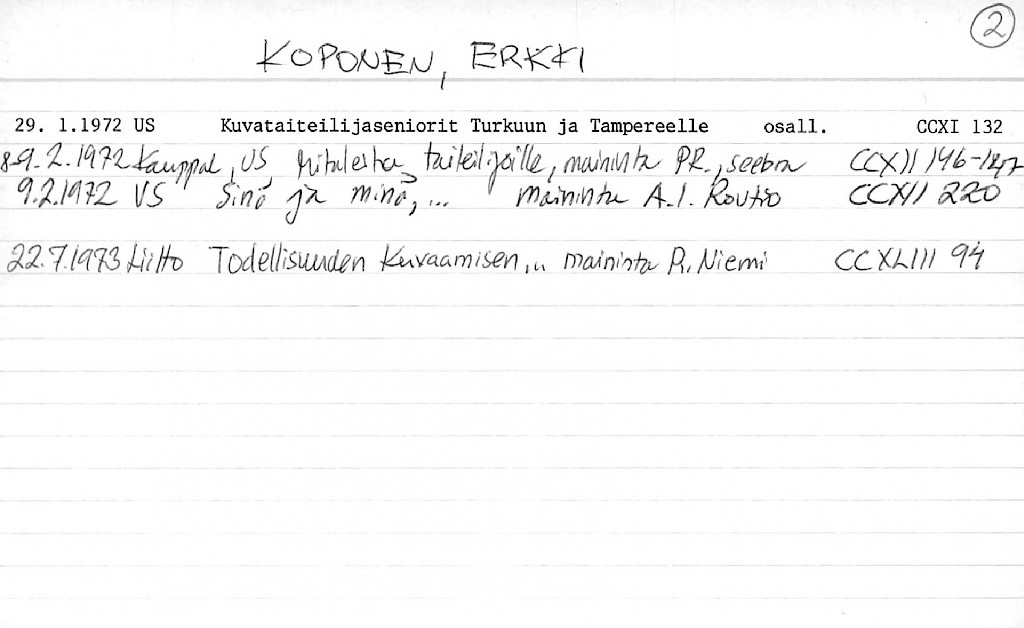 2
KOPONEN, ERKKI
29. 1.1972 US Kuvataiteilijaseniorit Turkuun ja Tampereelle osall. CCXI 132
8-9.2.1972 Kauppal, US, Mitaleita taiteilijoille, maininta PR., seebra CCXII 146-147
9.2.1972 VS Sinä ja minä,... maininta A.I. Routio CCXII 220
22.7.1973 Liitto Todellisuuden Kuvaamisen... maininta R. Niemi CCXLIII 94